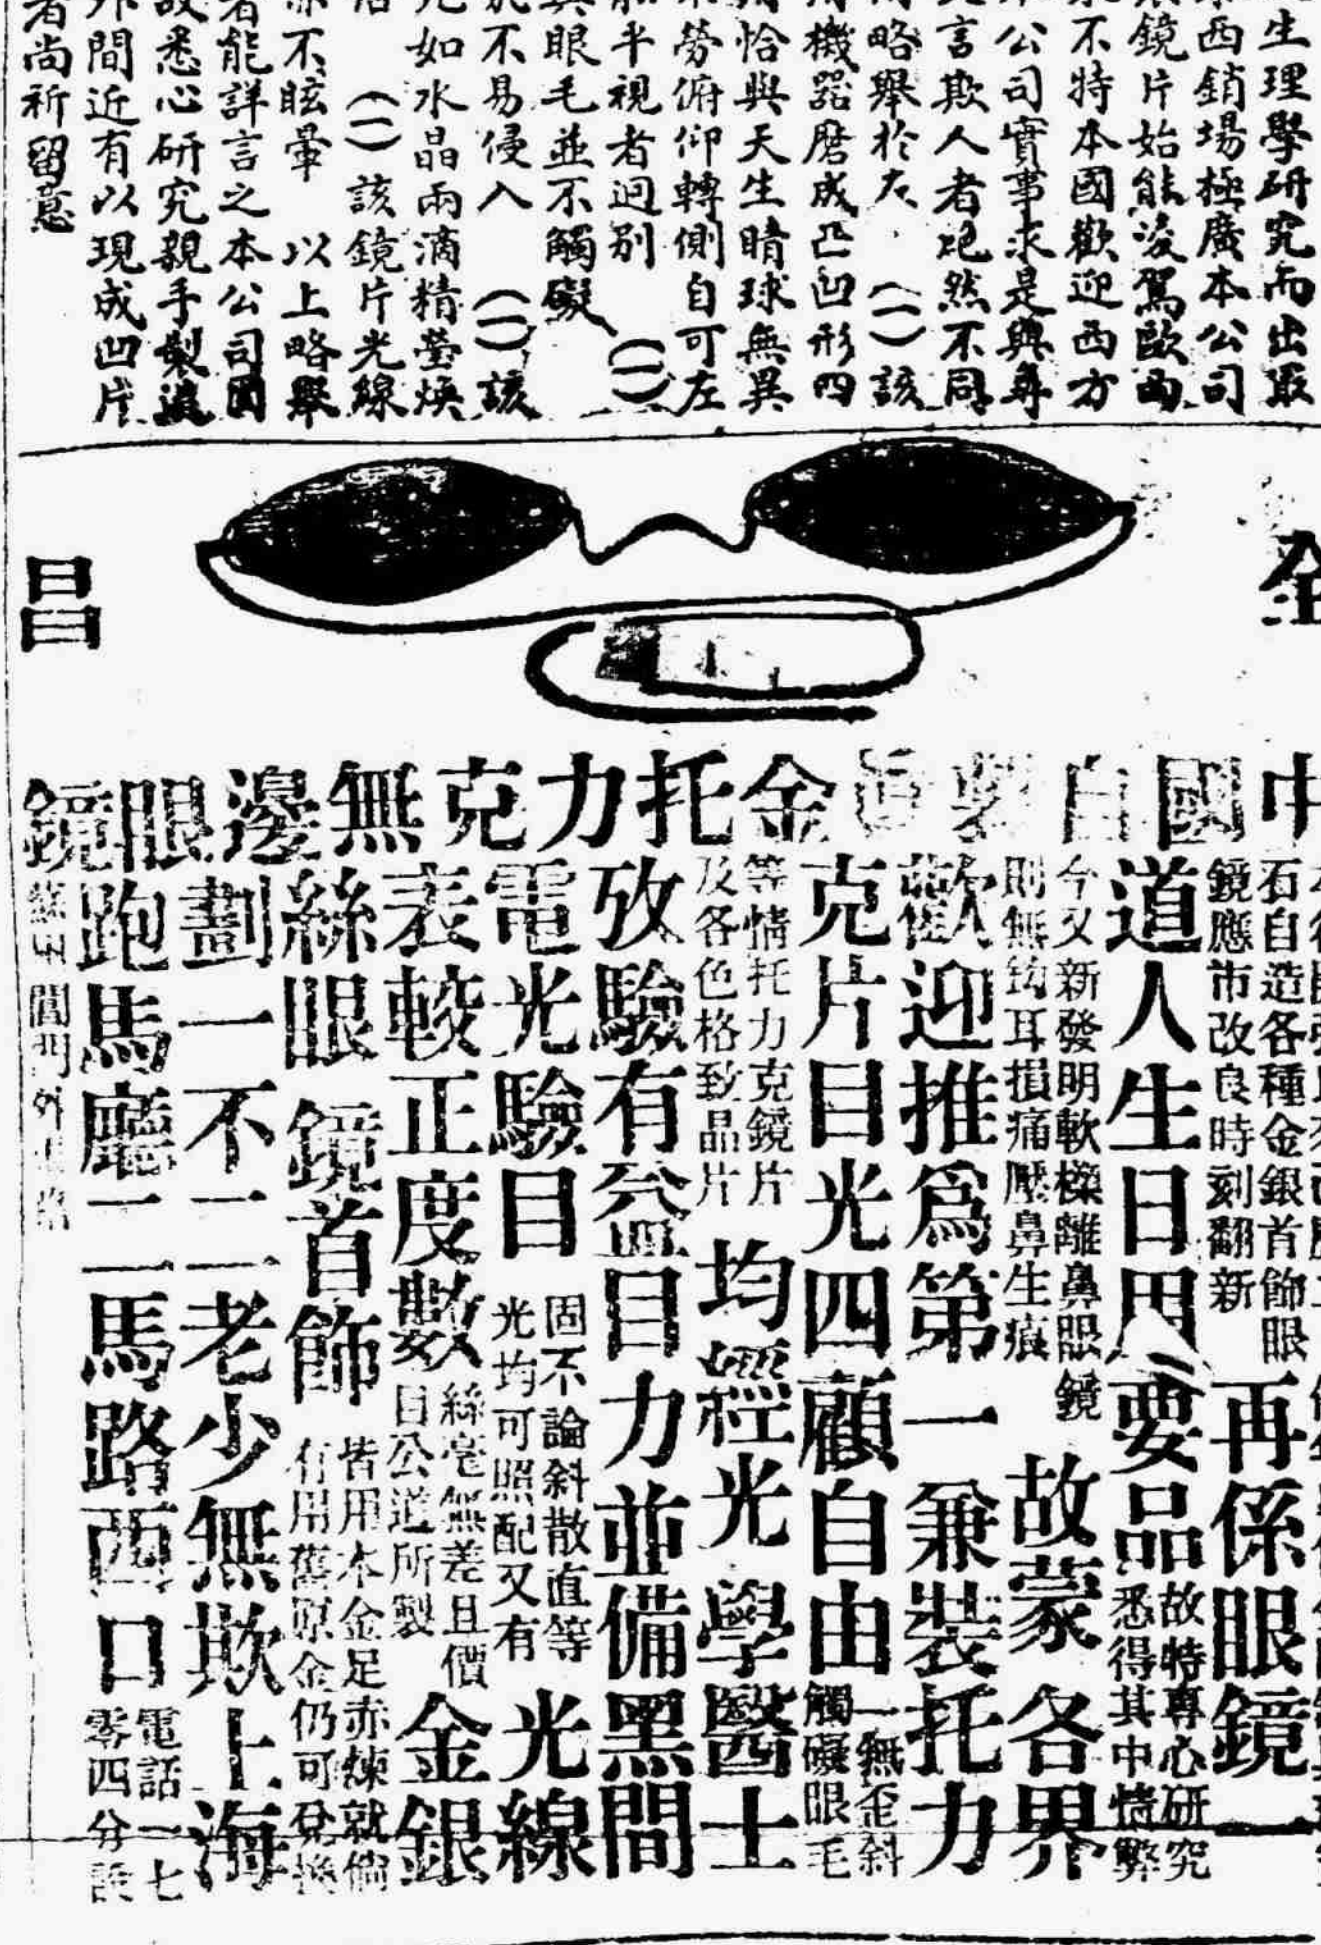 生理學研究而出最
西銷場極廣本公司
鏡片始能淩駕歐西
不特本國歡迎西方
公司實事求是與專
言欺人者絕然不同
略舉於左 (一)該
機器磨成凸凹形四
恰與天生睛球無異
勞俯仰轉側自可左
半視者迥别 (一)
眼毛並不觸礙
不易侵入 (一)該
如水晶兩滴精瑩煥
(一)該鏡片光線
不眩暈 以上略舉
者能詳言之本公司因
悉心研究親手製造
間近有以現成凹片
者尚祈留意
全
昌
中國自製眞金托力克無邊眼鏡
石自造各種金銀首飾眼
鏡應市改良時刻翻新
再係眼鏡一
道人生日用要品
故特專心研究
悉得其中情弊
今又新發明軟樑離鼻眼鏡
則無鈎耳損痛壓鼻生痕
故蒙各界
歡迎推爲第一兼裝托力
克片目光四顧自由
一無歪斜
觸礙眼毛
等情托力克鏡片
及各色格致品片
均經光學醫士
攷驗有益目力並備黑間
電光驗目
固不論斜散直等
光均可照配又有
光線
表較正度數
絲毫無差且價
目公道所製
金銀
絲眼鏡首飾
皆用本金足赤煉就倘
有用舊原金仍可兌換
劃一不二老少無欺上海
跑馬廳二馬路西口
電話一七
零四分設
閶門外